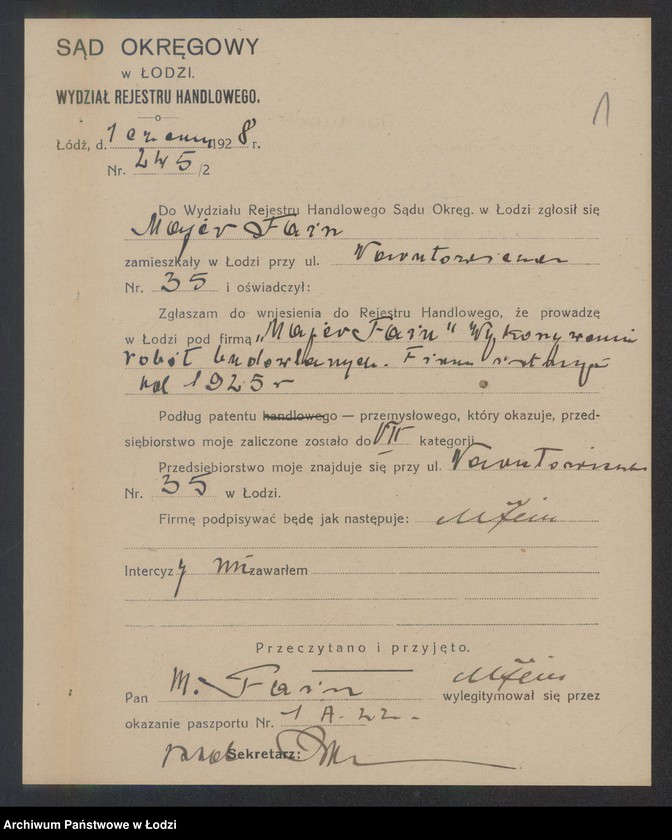 SĄD OKRĘGOWY
w ŁODZI.
WYDZIAŁ REJESTRU HANDLOWEGO.
1
Łódź, d. 1 czerwca 1928 r.
Nr. 245/2
Do Wydziału Rejestru Handlowego Sądu Okręg. w Łodzi zgłosił się
Majer Fajn
zamieszkały w Łodzi przy ul. Narutowicza
Nr. 35 i oświadczył:
Zgłaszam do wniesienia do Rejestru Handlowego, że prowadzę
w Łodzi pod firmą „Majer Fajn" Wykonywanie
robót budowlanych. Firma istnieje
od 1925 r
Podług patentu handlowego — przemysłowego, który okazuje, przed-
siębiorstwo moje zaliczone zostało do VII kategorji
Przedsiębiorstwo moje znajduje się przy ul. Narutowicza
Nr. 35 w Łodzi.
Firmę podpisywać będę jak następuje: M Fein
Intercyzy nie zawarłem
Przeczytano i przyjęto.
M Fein
Pan M. Fajn wylegitymował się przez
okazanie paszportu Nr. 1 A. 22.
Sekretarz:
Archiwum Państwowe w Łodzi